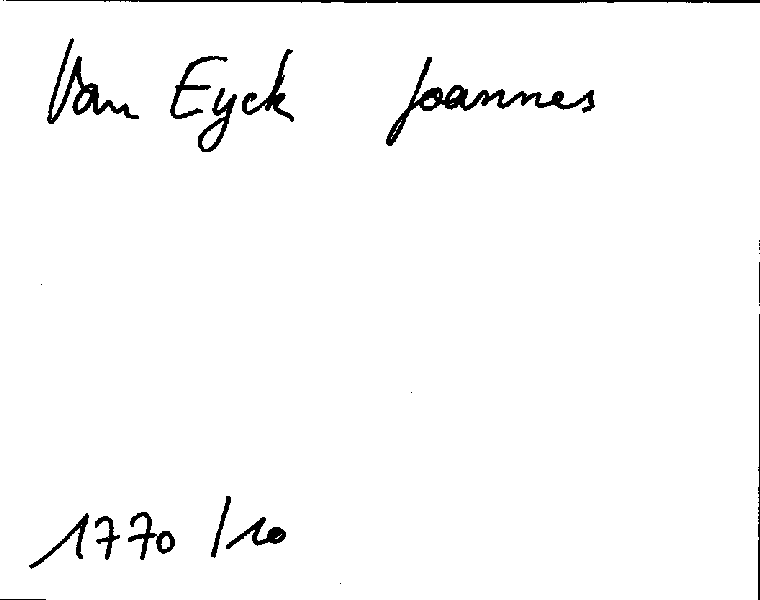 Van Eyck Joannes
1770/10